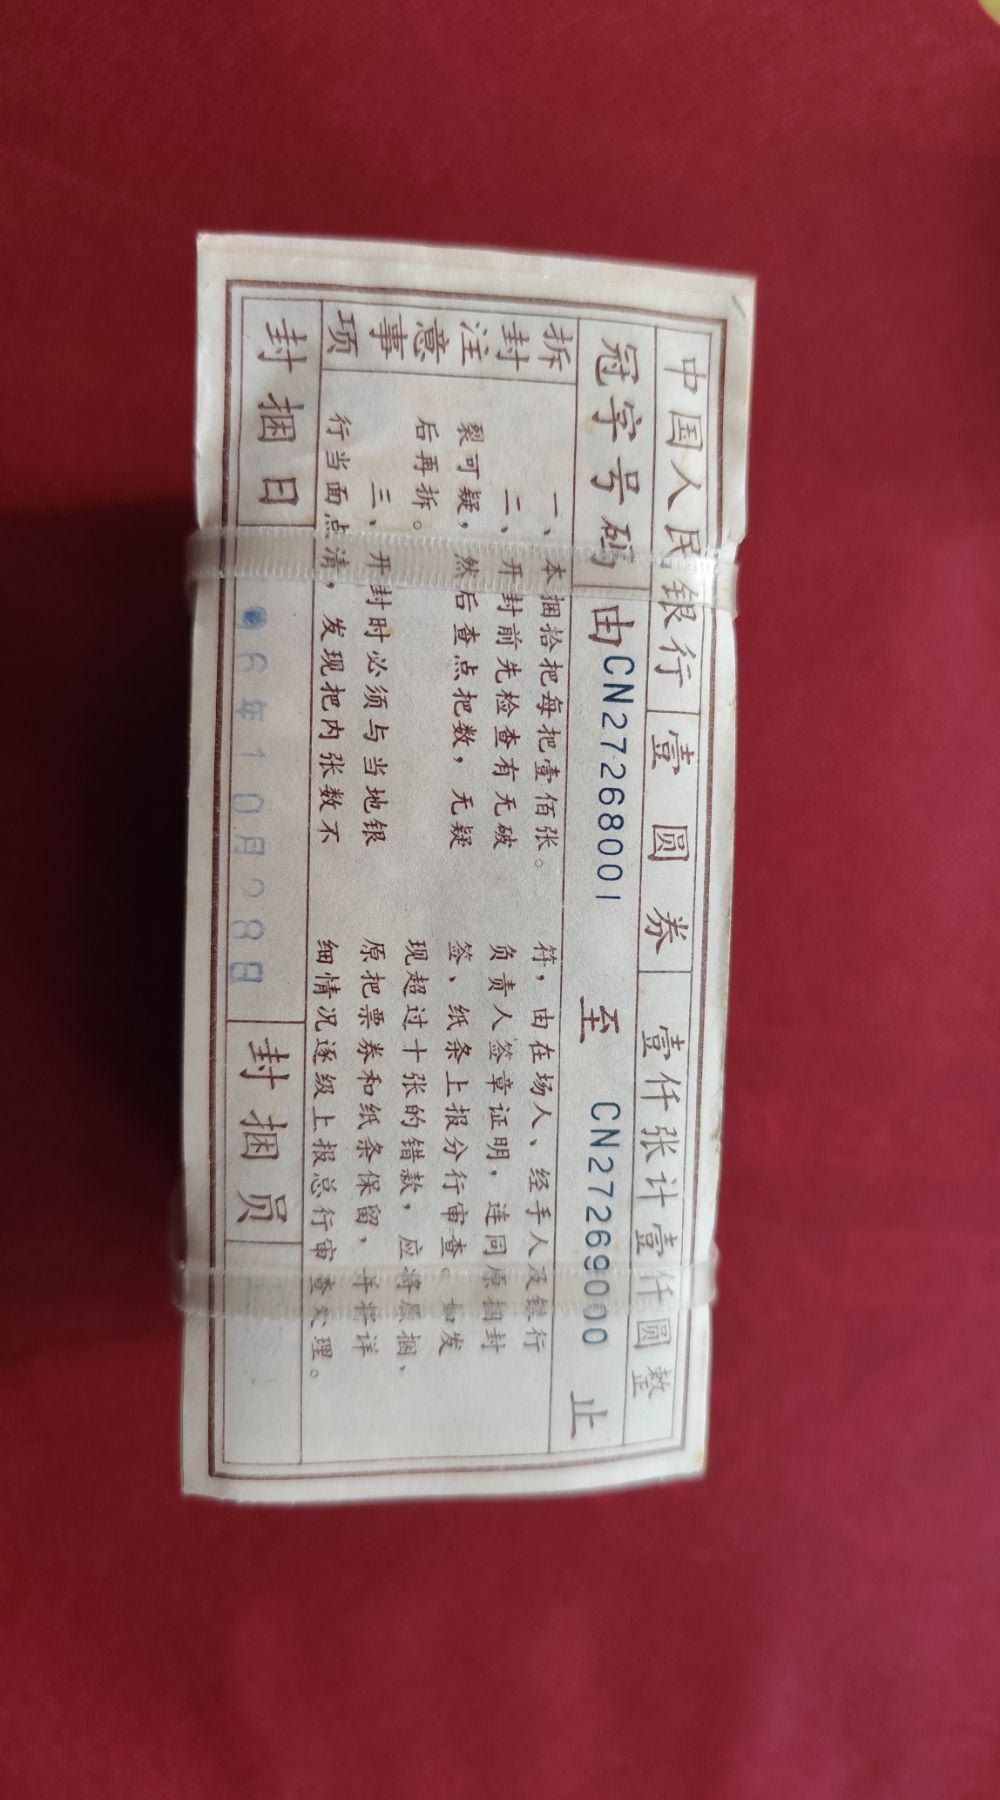 中国人民银行 壹圆券 壹仟张计壹仟圆整
冠字号码 由CN27268001 至 CN27269000 止
拆封注意事项
一、本捆拾把每把壹佰张。
二、开封前先检查有无破
裂可疑，然后查点把数，无疑
后再拆。
三、开封时必须与当地银
行当面点清，发现把内张数不
符，由在场人、经手人及银行
负责人签章证明，连同原捆封
签、纸条上报分行审查。如发
现超过十张的错款，应将原捆、
原把票券和纸条保留，并将详
细情况逐级上报总行审查处理。
封捆日 6年10月28日 封捆员